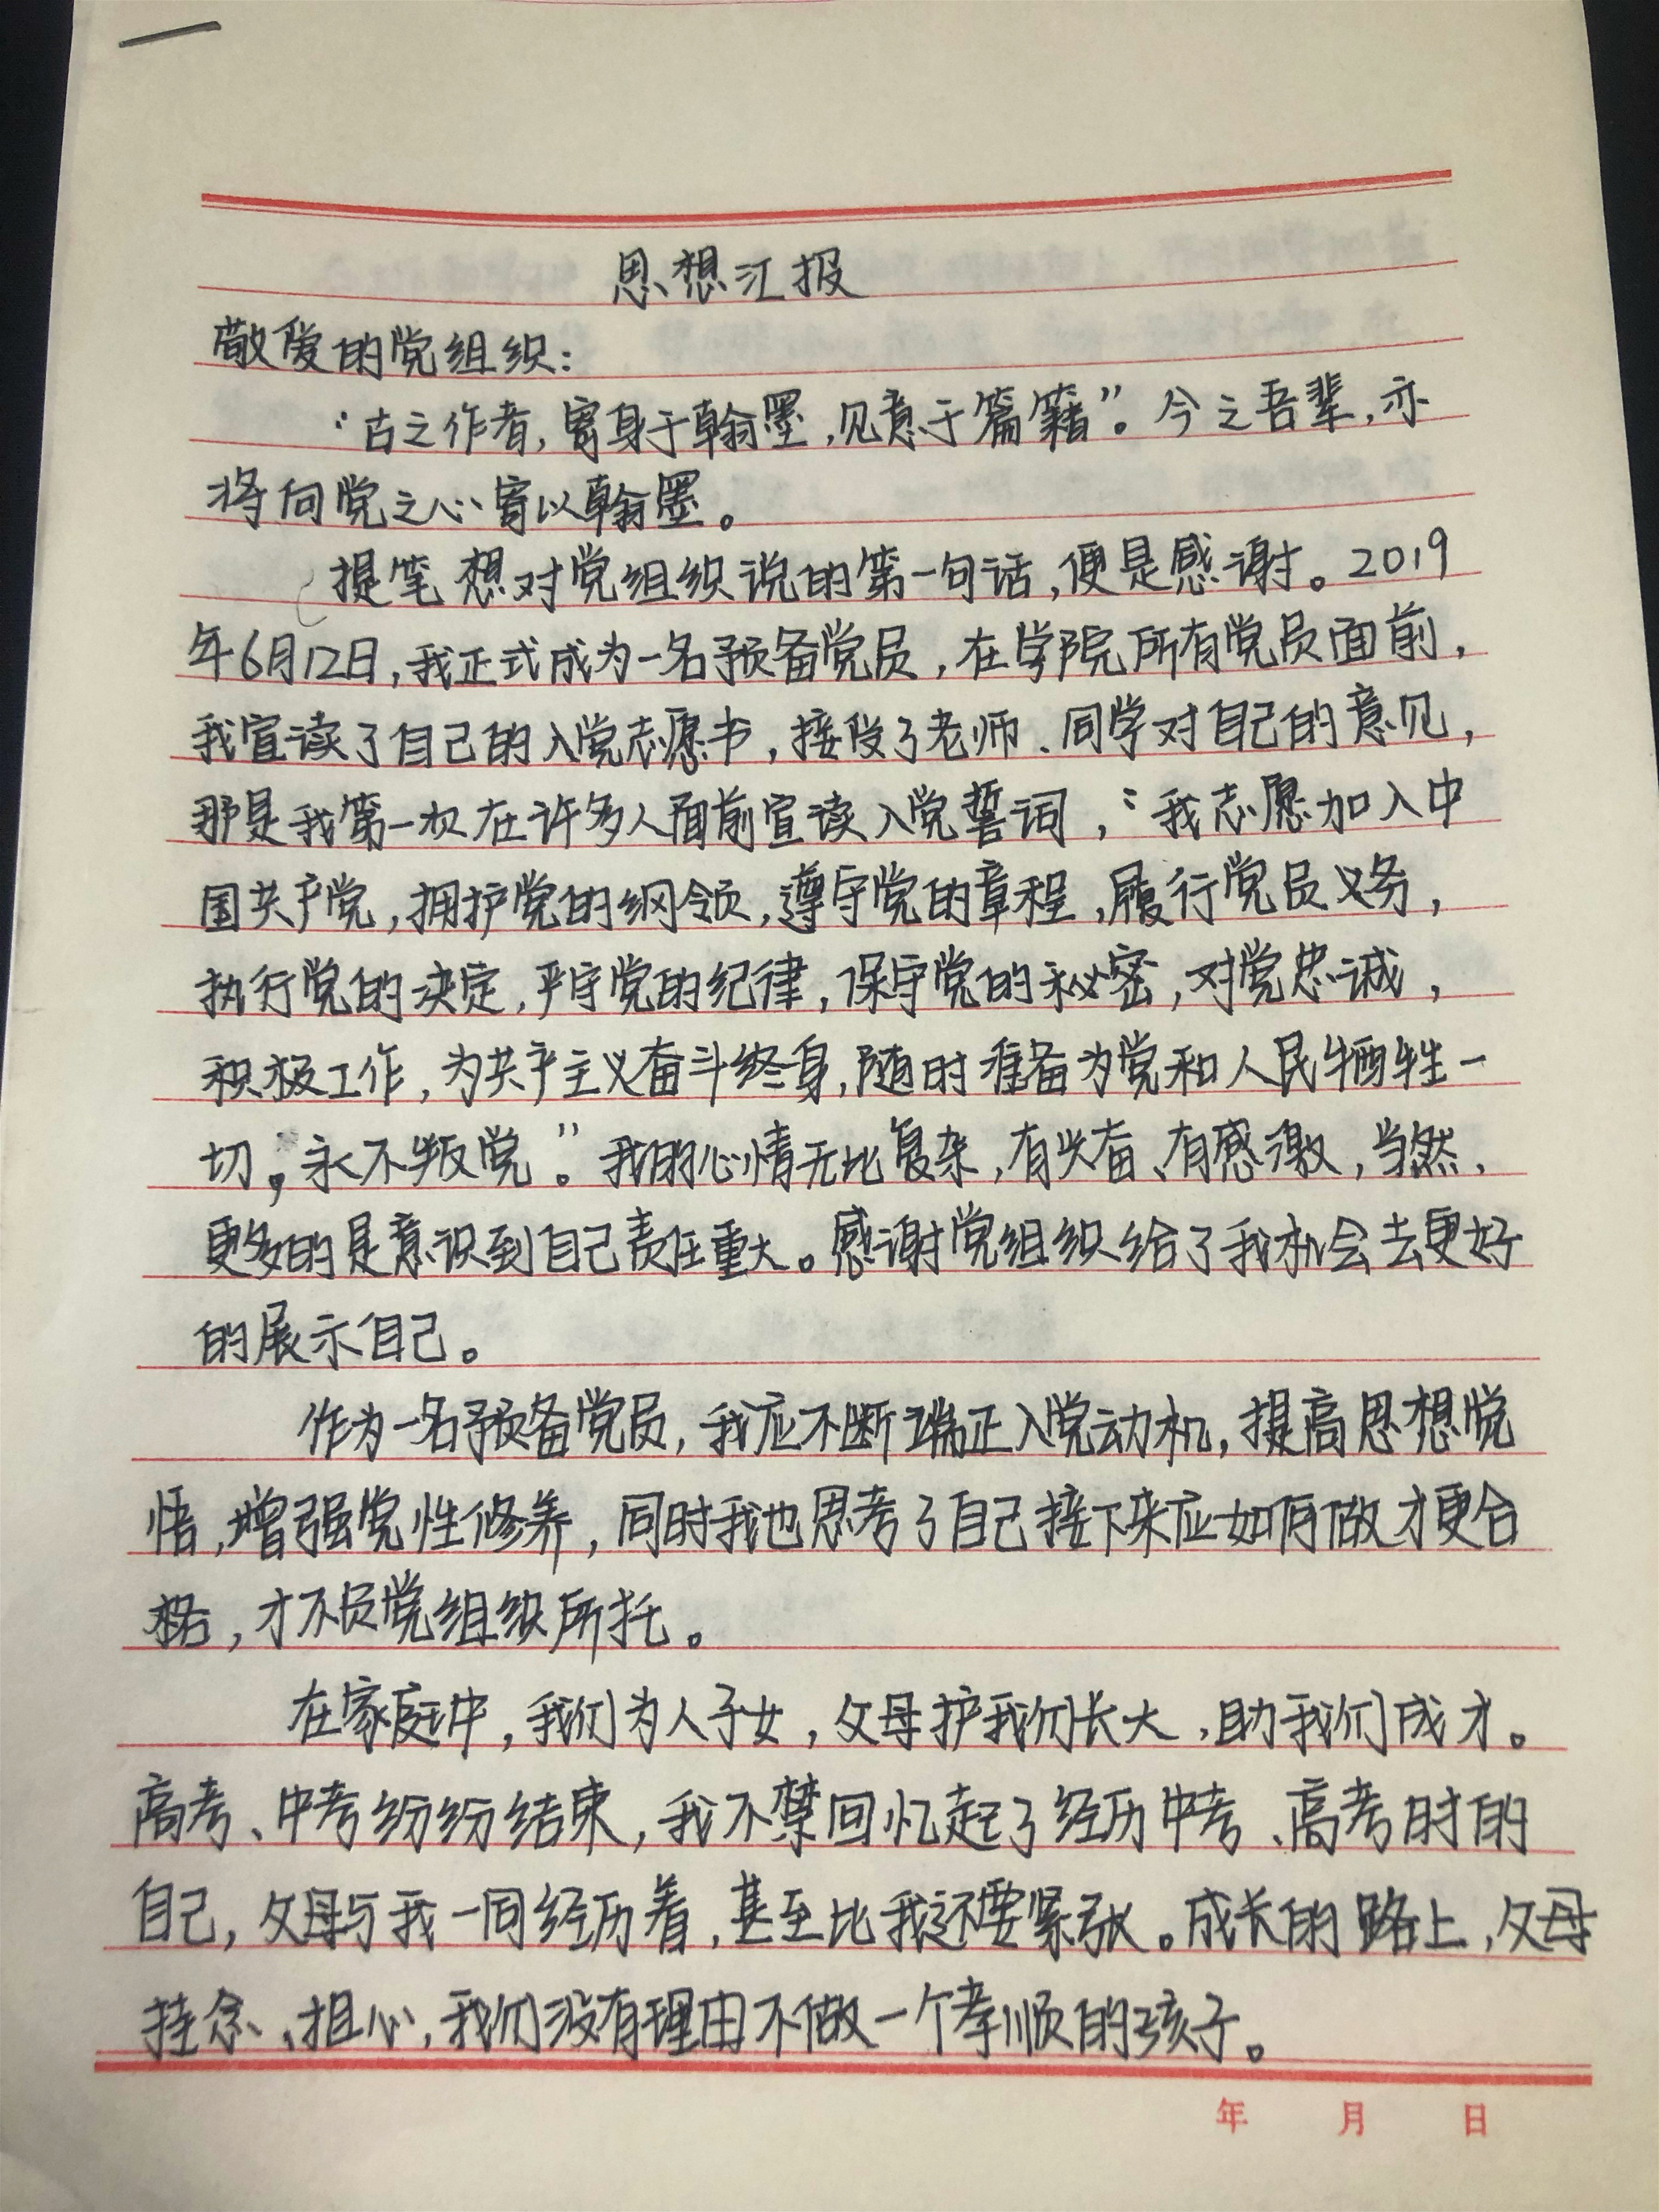 思想汇报
敬爱的党组织：
“古之作者，寄身于翰墨，见意于篇籍”。今之吾辈，亦
将向党之心寄以翰墨。
提笔想对党组织说的第一句话，便是感谢。2019
年6月12日，我正式成为一名预备党员，在学院所有党员面前，
我宣读了自己的入党志愿书，接受了老师、同学对自己的意见，
那是我第一次在许多人面前宣读入党誓词，“我志愿加入中
国共产党，拥护党的纲领，遵守党的章程，履行党员义务，
执行党的决定，严守党的纪律，保守党的秘密，对党忠诚，
积极工作，为共产主义奋斗终身，随时准备为党和人民牺牲一
切，永不叛党”。我的心情无比复杂，有兴奋、有感激，当然，
更多的是意识到自己责任重大。感谢党组织给了我机会去更好
的展示自己。
作为一名预备党员，我应不断端正入党动机，提高思想觉
悟，增强党性修养，同时我也思考了自己接下来应如何做才更合
格，才不负党组织所托。
在家庭中，我们为人子女，父母护我们长大，助我们成才。
高考、中考纷纷结束，我不禁回忆起了经历中考、高考时的
自己，父母与我一同经历着，甚至比我还要紧张。成长的路上，父母
挂念、担心，我们没有理由不做一个孝顺的孩子。
年 月 日